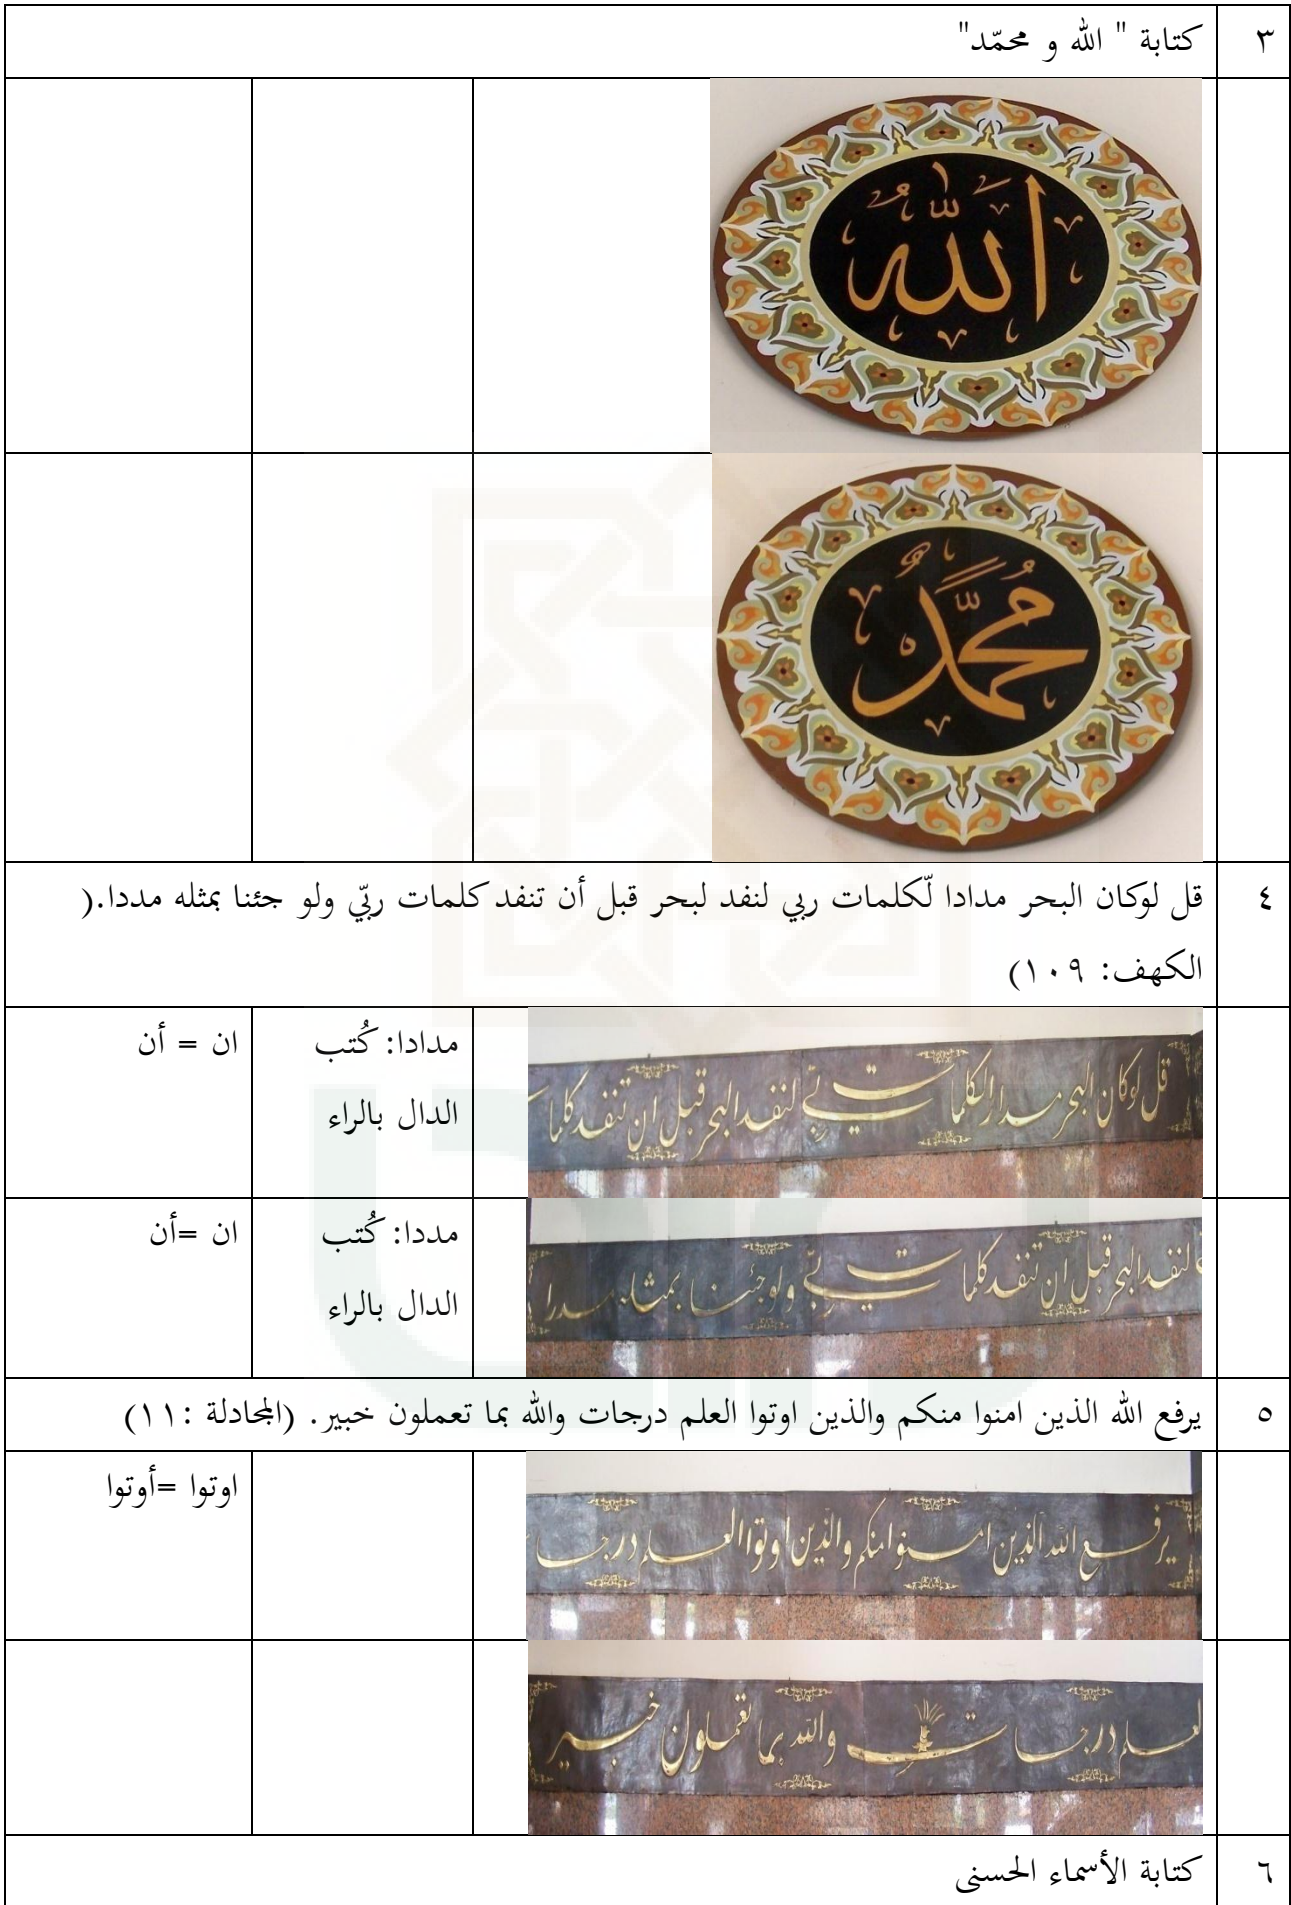 ٣ كتابة " الله و محمّد"
الله
محمد
٤ قل لوكان البحر مدادا لّكلمات ربي لنفد لبحر قبل أن تنفد كلمات ربّي ولو جئنا بمثله مددا.(
الكهف: ١٠٩)
قل لوكان البحر مدارالكلمات ربي لنفد البحر قبل ان تنفد كلما
مدادا: كُتب
الدال بالراء
ان = أن
لنفد البحر قبل ان تنفد كلمات ربّي ولو جئنا بمثله مدرا
مددا: كُتب
الدال بالراء
ان =أن
٥ يرفع الله الذين امنوا منكم والذين اوتوا العلم درجات والله بما تعملون خبير. (المجادلة :١١)
يرفع الله الذين امنوا منكم والذين اوتوا العلم درجا
اوتوا =أوتوا
لعلم درجات والله بما تعملون خبير
٦ كتابة الأسماء الحسنى